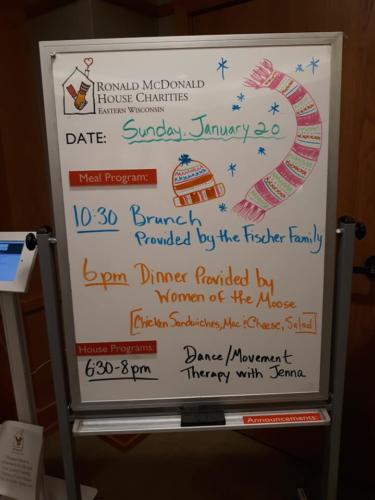 RONALD MCDONALD
HOUSE CHARITIES
EASTERN WISCONSIN
DATE: Sunday, January 20
Meal Program:
10:30 Brunch
Provided by the Fischer Family
6pm Dinner Provided by
Women of the Moose
[Chicken Sandwiches, Mac & Cheese, Salad]
House Programs:
630-8pm Dance/Movement
Therapy with Jenna
Announcements: